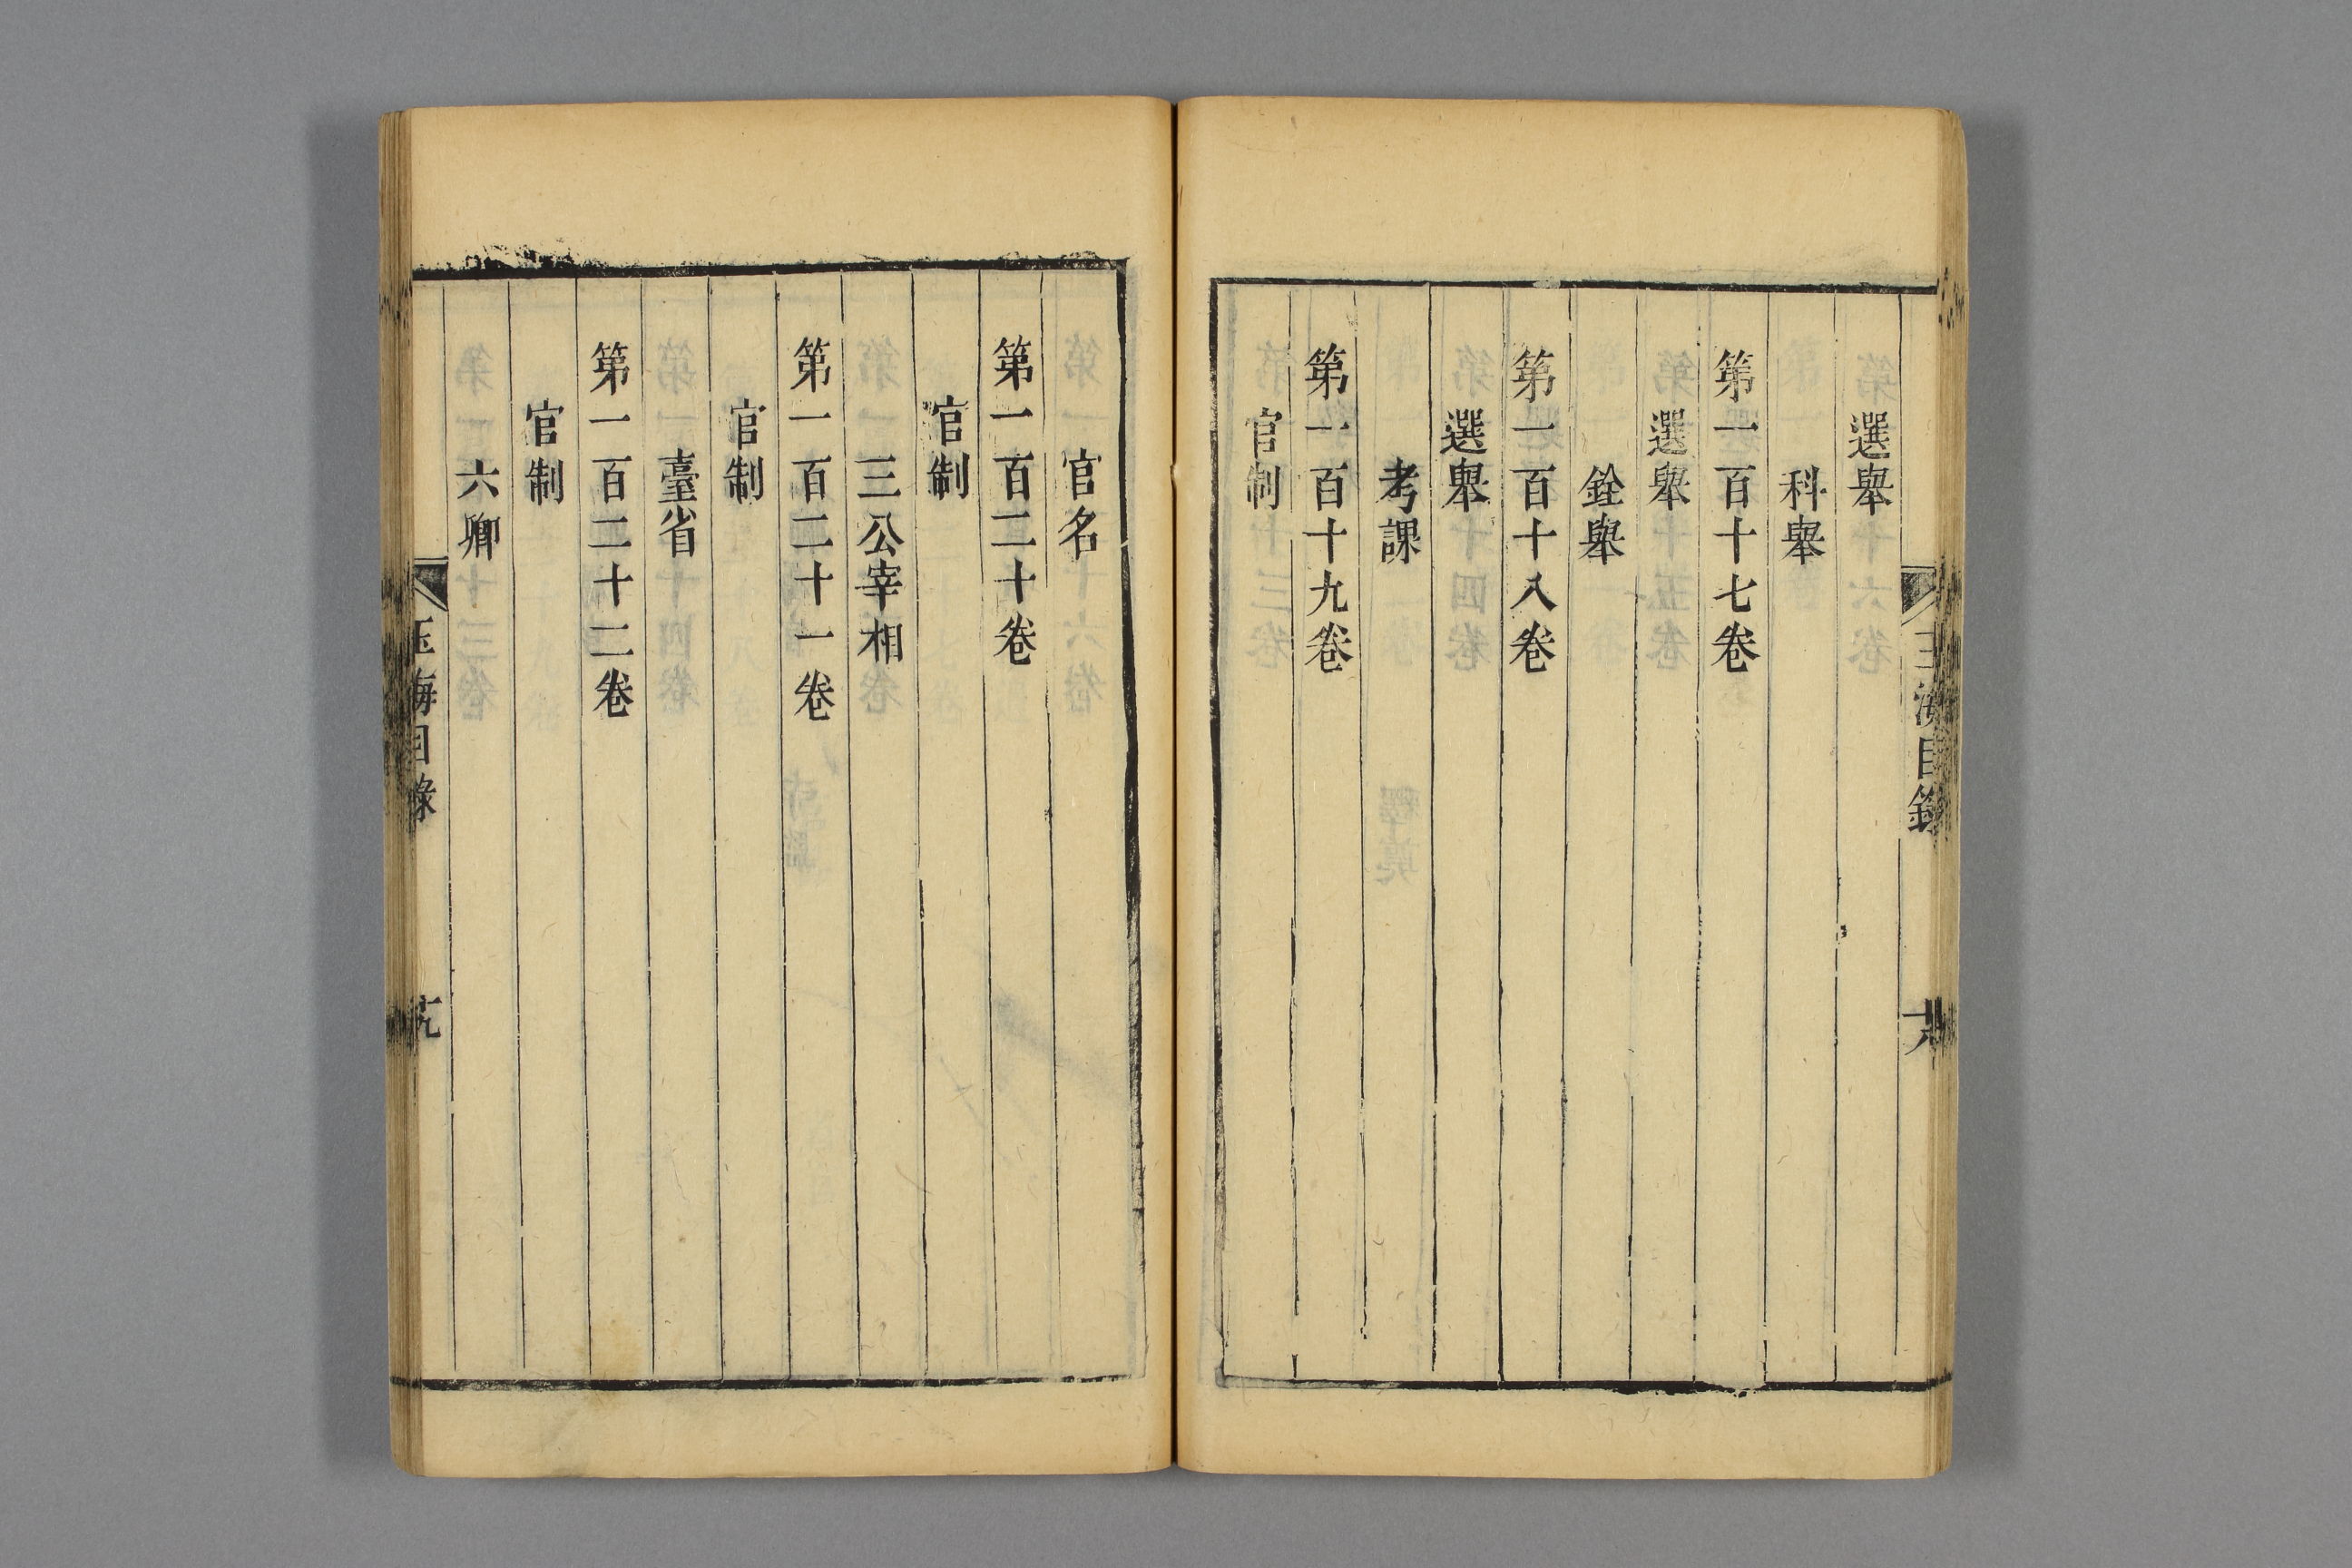 玉海目錄
選舉
科舉
第一百十七卷
選舉
銓舉
第一百十八卷
選舉
考課
第一百十九卷
官制
官名
第一百二十卷
官制
三公宰相
第一百二十一卷
官制
臺省
第一百二十二卷
官制
六卿
玉海目錄